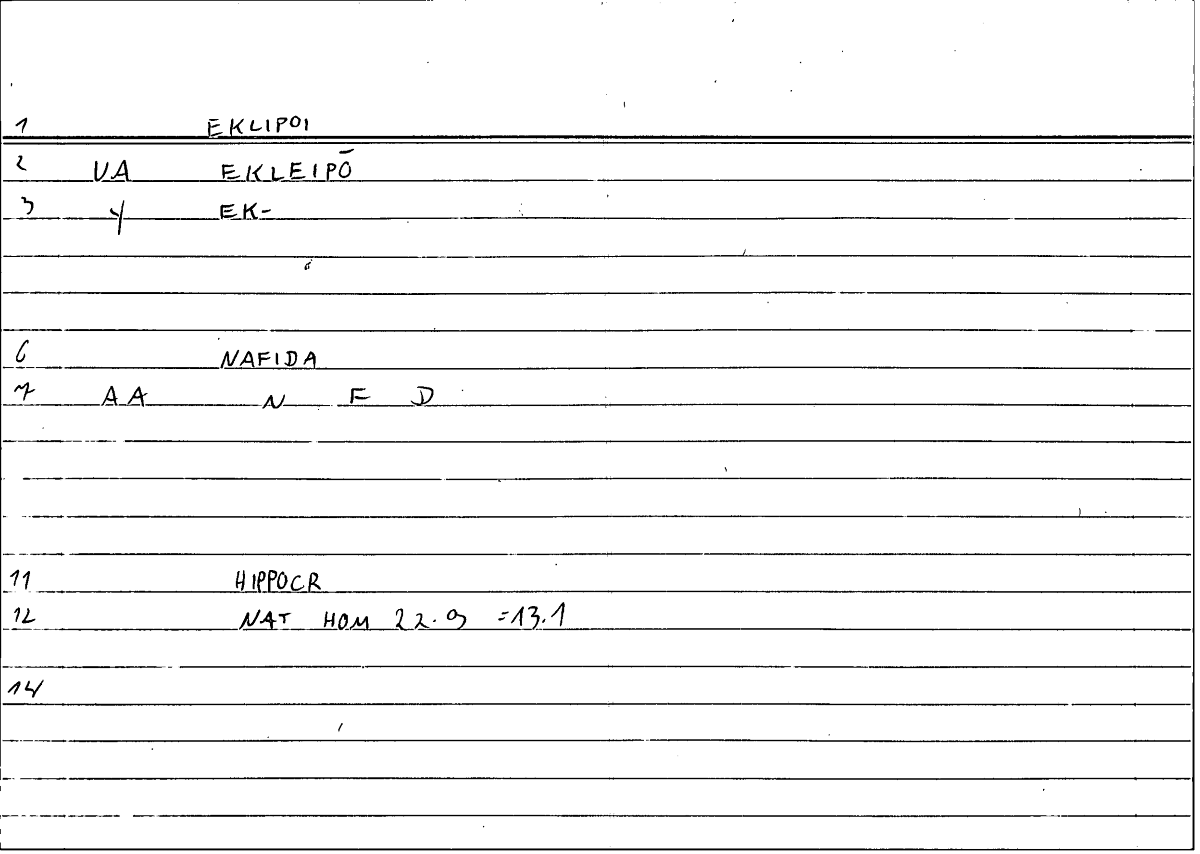 1 EKLIPOI
2 VA EKLEIPŌ
3 Y EK-
6 NAFIDA
7 AA N F D
11 HIPPOCR
12 NAT HOM 22.9 =13.1
14